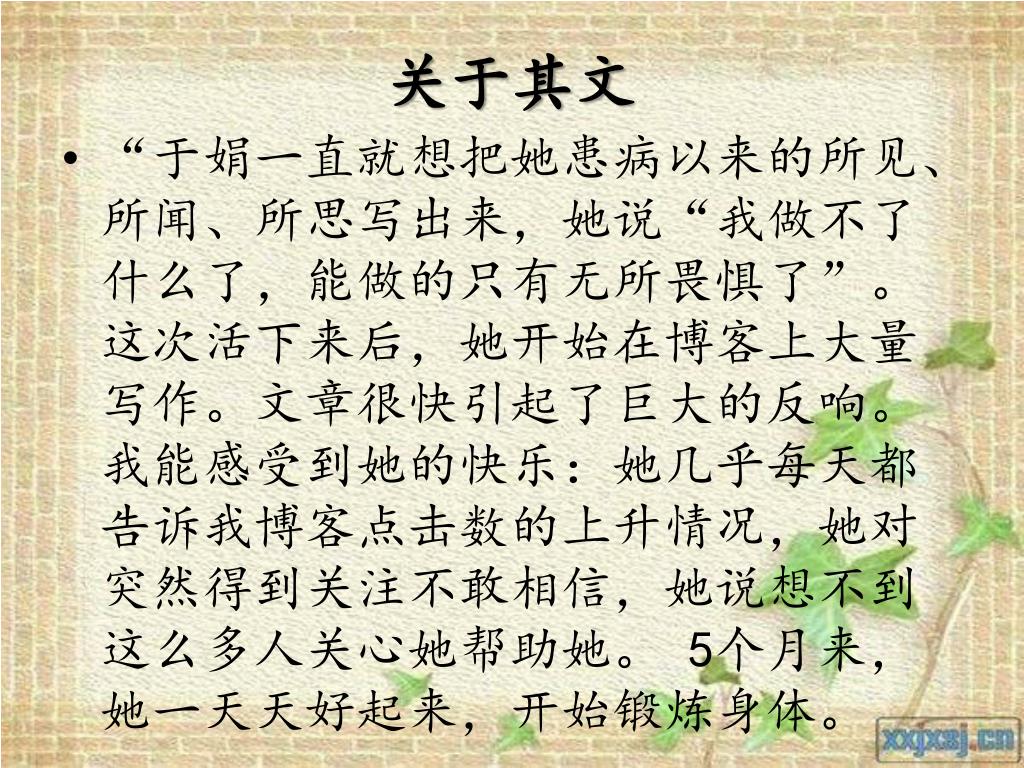 关于其文
• “于娟一直就想把她患病以来的所见、
所闻、所思写出来，她说“我做不了
什么了，能做的只有无所畏惧了”。
这次活下来后，她开始在博客上大量
写作。文章很快引起了巨大的反响。
我能感受到她的快乐：她几乎每天都
告诉我博客点击数的上升情况，她对
突然得到关注不敢相信，她说想不到
这么多人关心她帮助她。 5个月来，
她一天天好起来，开始锻炼身体。
xxjxsj.cn